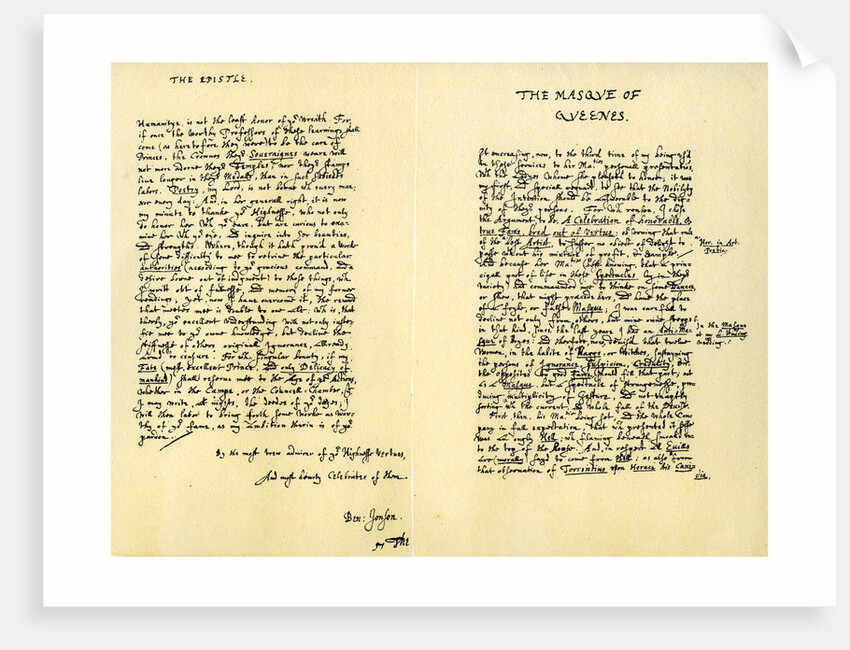 THE EPISTLE.
Humanitye, is not the least honor of yr Wreath. For,
if once the worthy Professors of these learnings shall
come (as heretofore they were) to be the care of
Princes, the Crownes theyr Soveraignes weare will
not more adorne theyr Temples; nor theyr stamps
live longer in theyr Medalls, than in such Subiects
labors. Poetry, my Lord, is not borne wth every man;
Nor every day: And, in her generall right, it is now
my minute to thanke yr Highnesse, who not only
do honor her wth yr eare, but are curious to exa-
mine her wth yr eye, and inquire into her beauties,
and strengths. Where, though it hath prov'd a worke
of some difficulty to mee to retrive the particular
authorities (according to yr gracious command, and a
desire borne out of iudgment) to those things, wch
I writt out of fulnesse, and memory of my former
readings; yet, now I have overcome it, the reward
that meetes mee is double to one act: wch is, that
therby, yr excellent understanding will not only iusti-
fie mee to yr owne knowledge, but decline the
stiffnesse of others originall Ignorance, allready
arm'd to censure. For wch singular bounty, if my
Fate (most excellent Prince, and only Delicacy of
mankind) shall reserve mee to the Age of yr Actions,
whether in the Campe, or the Councell-Chamber, yt
I may write, at nights, the deedes of yr dayes; I
will then labor to bring forth some worke as wor-
thy of yr fame, as my ambition therin is of yr
pardon.
By the most trew admirer of yr Highnesse Vertues,
And most hearty Celebrater of them.
Ben: Jonson.
The
THE MASQVE OF
QVEENES.
It encreasing, now, to the third time of my being us'd
in these services to her Maties personall præsentations,
wth the Ladyes whome she pleaseth to honor; it was
my first, and speciall reguard, to see that the Nobility
of the Invention should be answerable to the dig-
nity of theyr persons. For wch reason, I chose
the Argument, to be, A Celebration of honorable, &
true Fame, bred out of Vertue: observing that rule
of the best Artist, to suffer no obiect of delight to
passe wthout his mixture of profit, & example.
Hor. in Art.
Poetic.
And because her Matie (best knowing, that a prin-
cipall part of life in these Spectacles lay in theyr
variety) had commaunded mee to thinke on some Daunce,
or shew, that might præcede hers, and have the place
of a foyle, or false-Masque; I was carefull to
decline not only from others, but mine owne stepps
in that kind, since the last yeare I had an Anti-Mas-
In the Masque
at my L. Hading.
wedding.
que of Boyes: and therefore, now, devis'd that twelve
Women, in the habite of Haggs, or Witches, sustayning
the persons of Ignorance, Suspicion, Credulity, &c.
the opposites to good Fame, should fill that part; not
as a Masque, but a spectacle of strangenesse, pro-
ducing multiplicity of Gesture, and not unaptly
sorting wth the current, and whole fall of the Devise.
First, then, his Matie being set, and the whole Com-
pany in full expectation, that wch presented it selfe
was an ougly Hell; wch flaming beneath, smoakd unto
to the top of the Roofe. And, in respect all Evills
are (morally) sayd to come from Hell; as also from
that observation of Torrentius upon Horace his Cani-
dia,